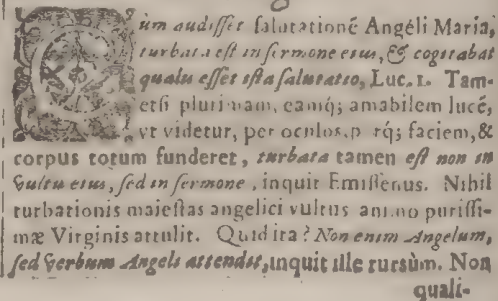 Cùm audisset salutationē Angeli Maria,
turbata est in sermone eius, & cogitabat
qualis esset ista salutatio, Luc. 1. Tam-
etsi plurimam, eamq́; amabilem lucē,
vt videtur, per oculos, p rq́; faciem, &
corpus totum funderet, turbata tamen est non in
vultu eius, sed in sermone, inquit Emissenus. Nihil
turbationis maiestas angelici vultus animo purissi-
mæ Virginis attulit. Quid ita? Non enim Angelum,
sed verbum Angeli attendit, inquit ille rursùm. Non
quali-